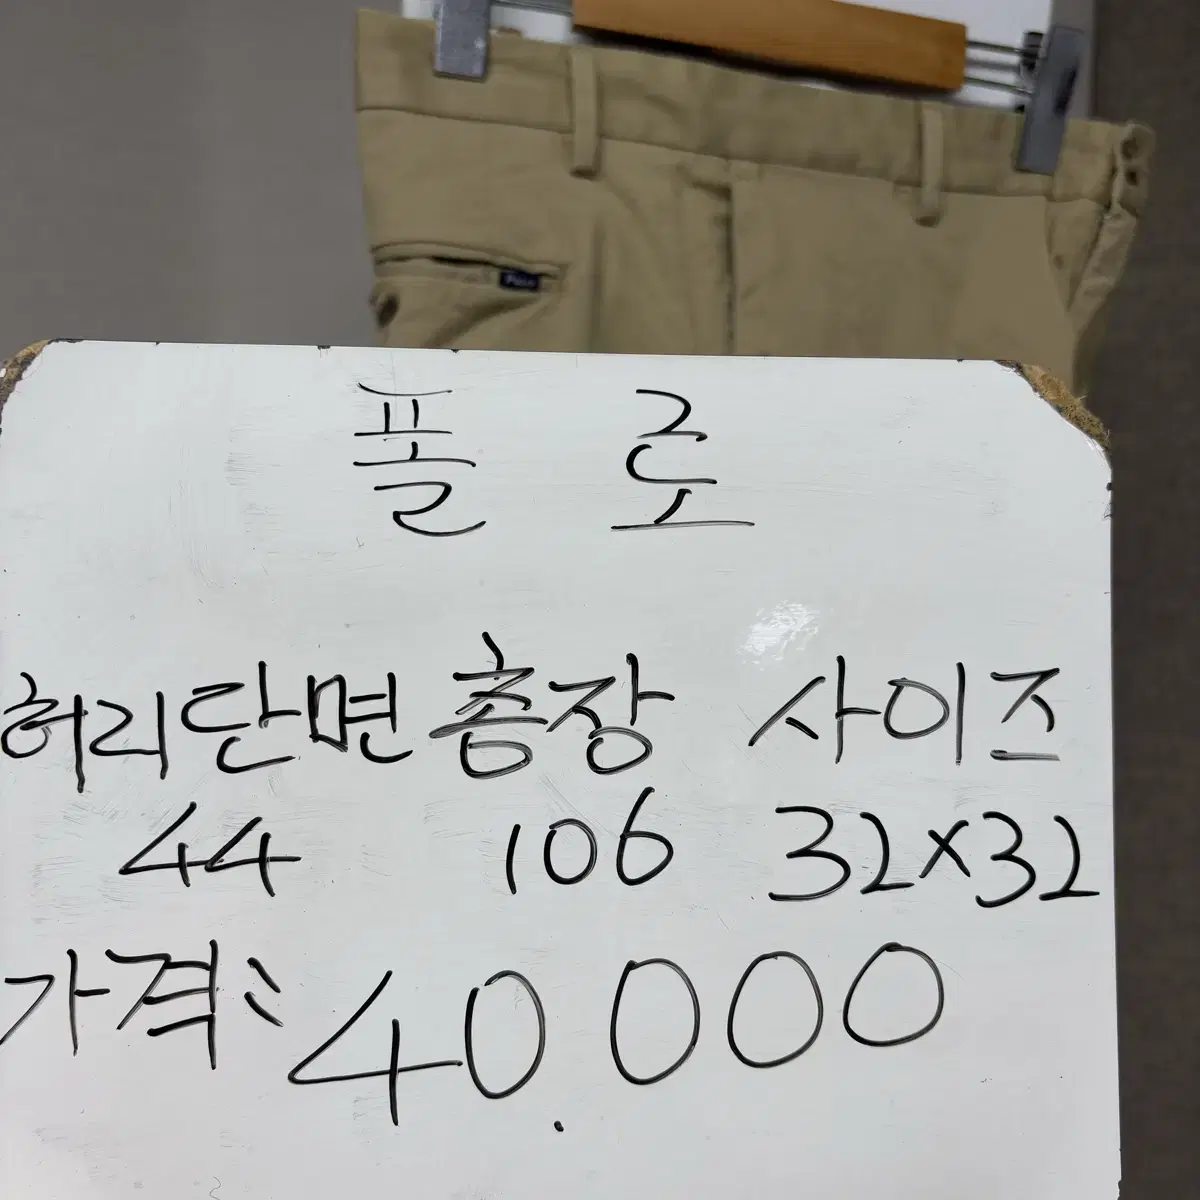 Polo
폴로
허리단면 총장 사이즈
44 106 32x32
가격: 40.000